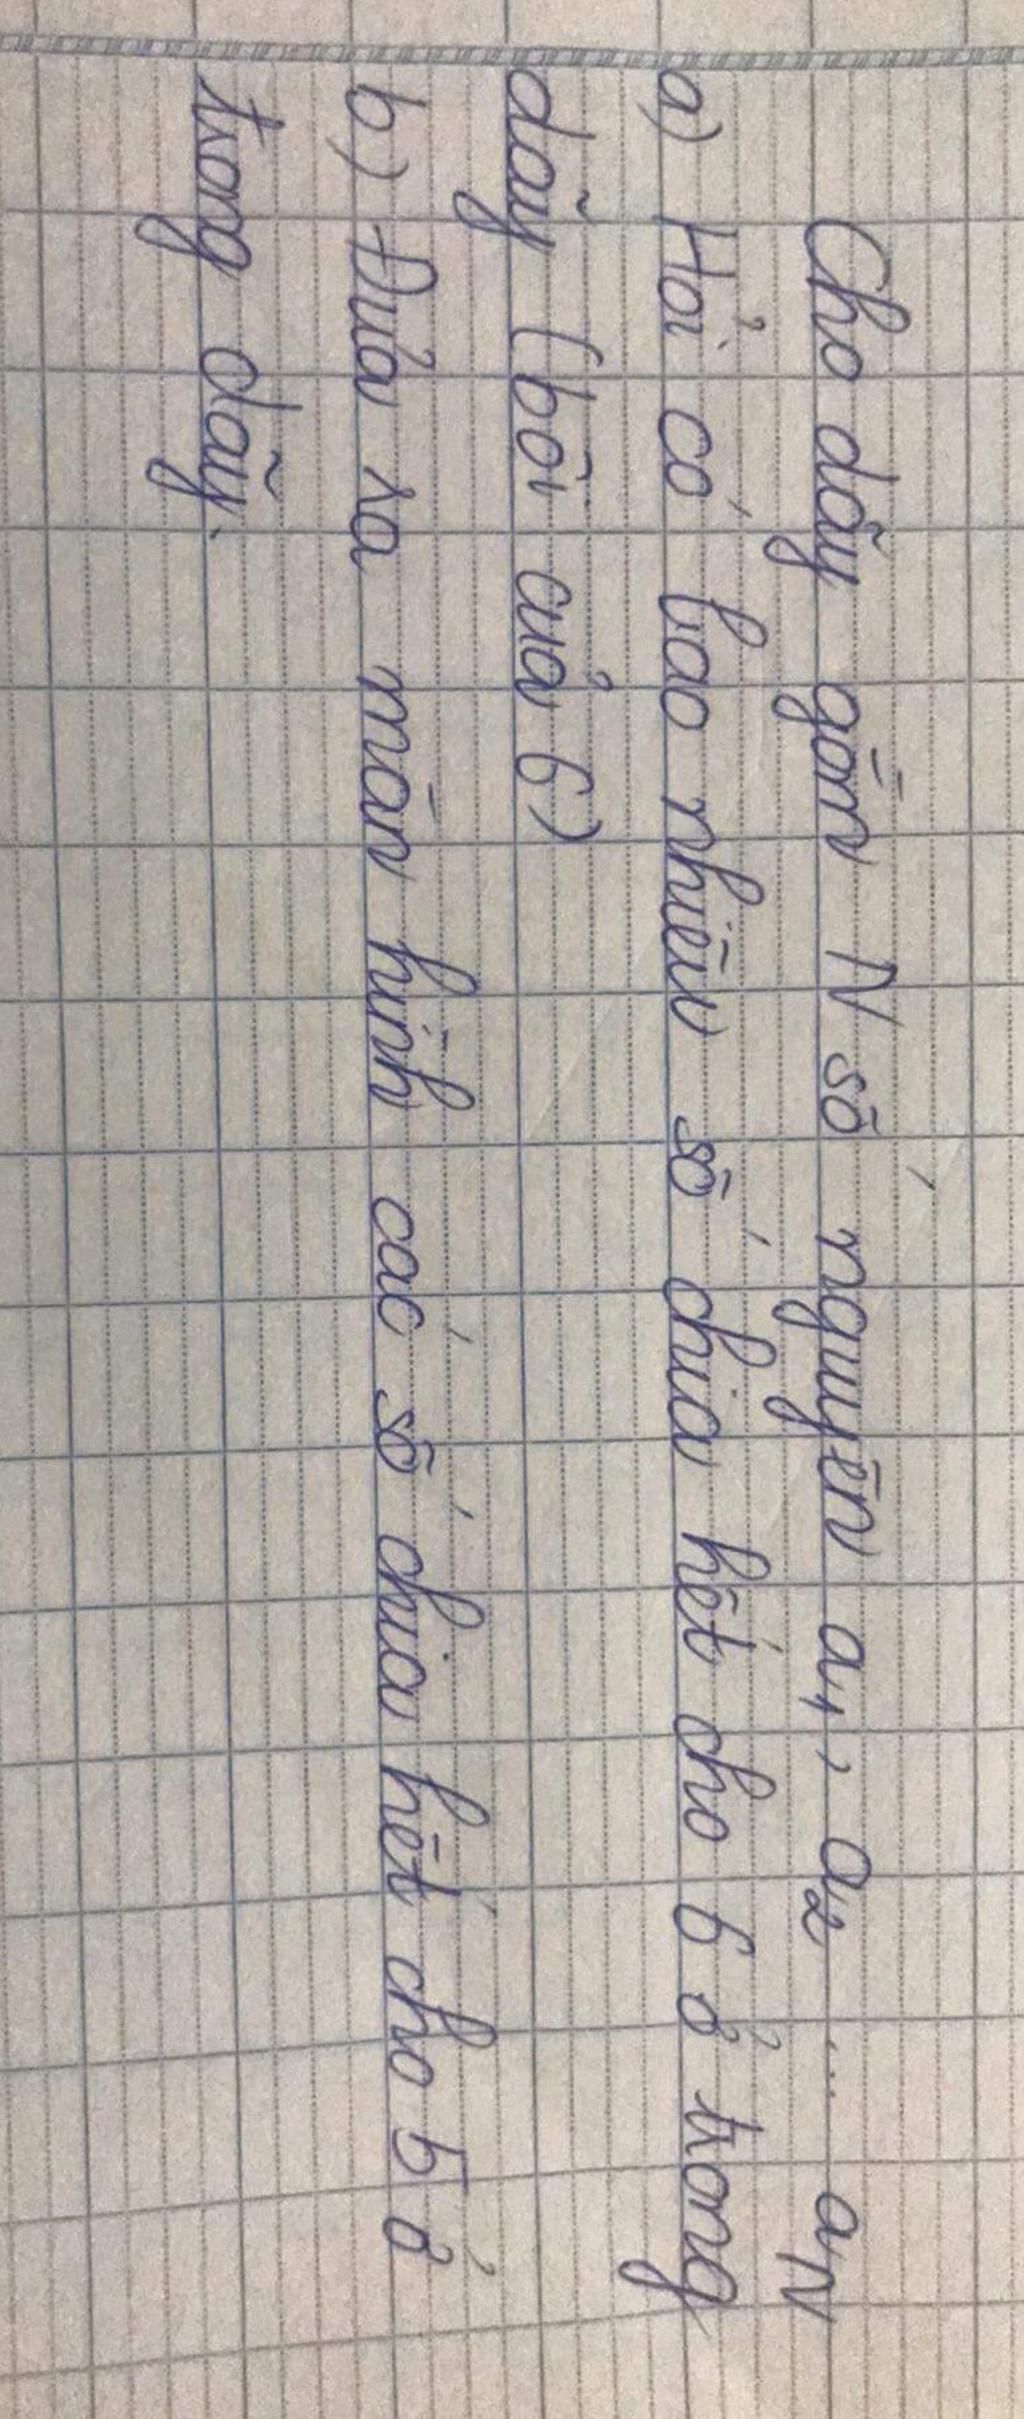 Cho dãy gồm N số nguyên a₁, a₂ ... aN
a) Hỏi có bao nhiêu số chia hết cho 6 ở trong
dãy (bội của 6)
b) Đưa ra màn hình các số chia hết cho 5 ở
trong dãy.